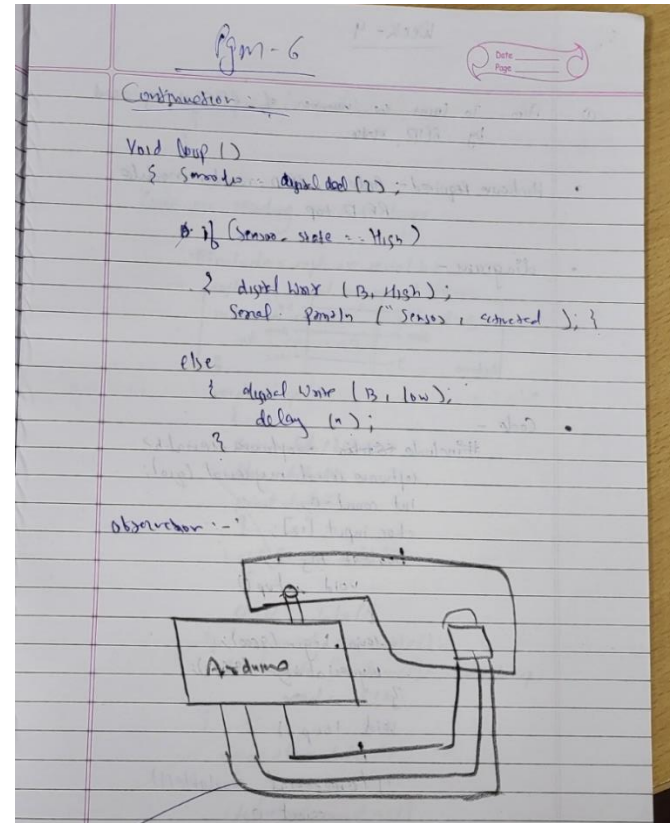 Pgm-6
Date
Page
Continuation:
Void loop ()
{ digital (2);
if (Sensor state == High)
{ digital (13, High);
Serial. ("Sensor, activated ); }
else
{ digital Write (13, low);
delay ( );
}
Observation :-
Arduino